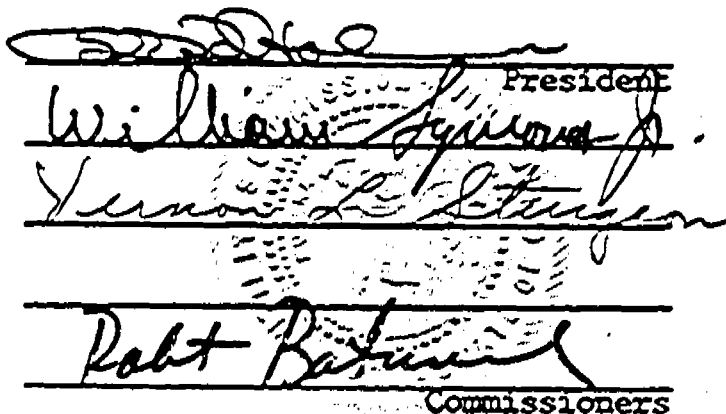 President
William Symons Jr.
Vernon L. Sturgeon
Robt Batinovich
Commissioners